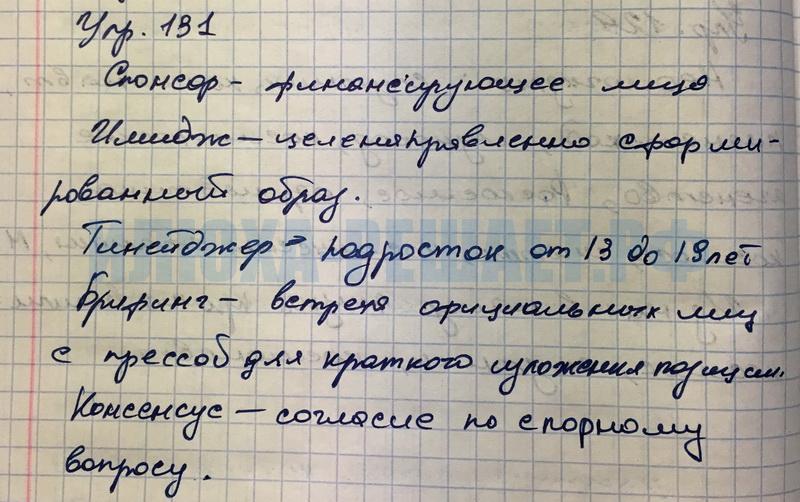 Упр. 131
Спонсор - финансирующее лицо
Имидж — целенаправленно сформи-
рованный образ.
Тинейджер - подросток от 13 до 19 лет
Брифинг — встреча официальных лиц
с прессой для краткого изложения позиции.
Консенсус — согласие по спорному
вопросу.